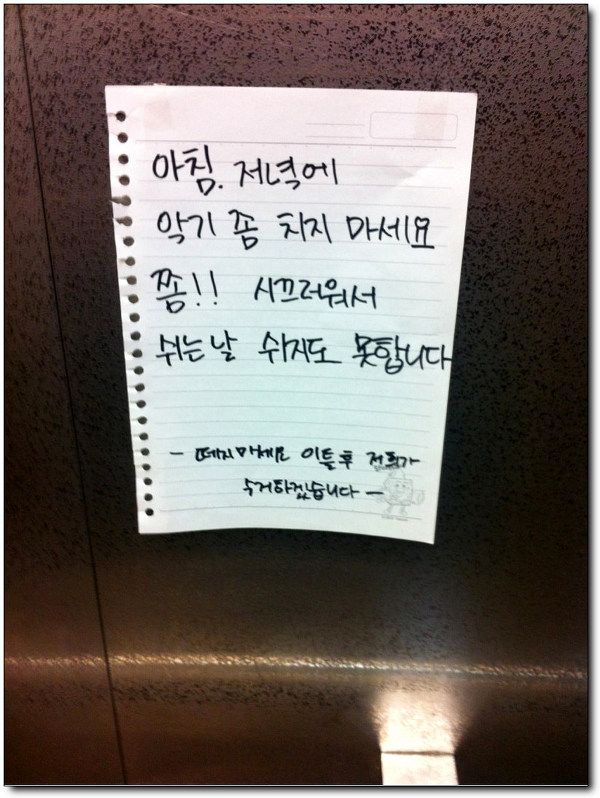 아침. 저녁에
악기 좀 치지 마세요
쫌!! 시끄러워서
쉬는날 쉬지도 못합니다
- 떼지마세요 이틀후 저희가
수거하겠습니다 -